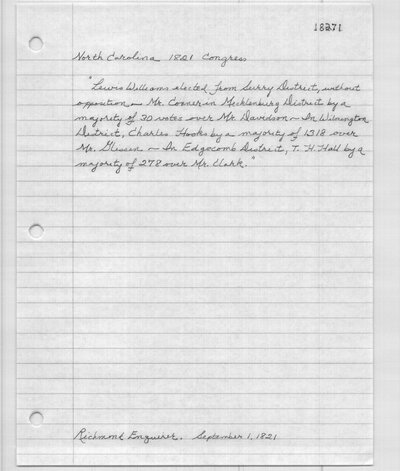 18271
North Carolina 1821 Congress
"Lewis Williams elected from Surry District, without
opposition — Mr. Conner in Mecklenburg District by a
majority of 30 votes over Mr. Davidson — In Wilmington
District, Charles Hooks by a majority of 1318 over
Mr. Glisson — In Edgecomb District, T. H. Hall by a
majority of 278 over Mr. Clark."
Richmond Enquirer. September 1, 1821